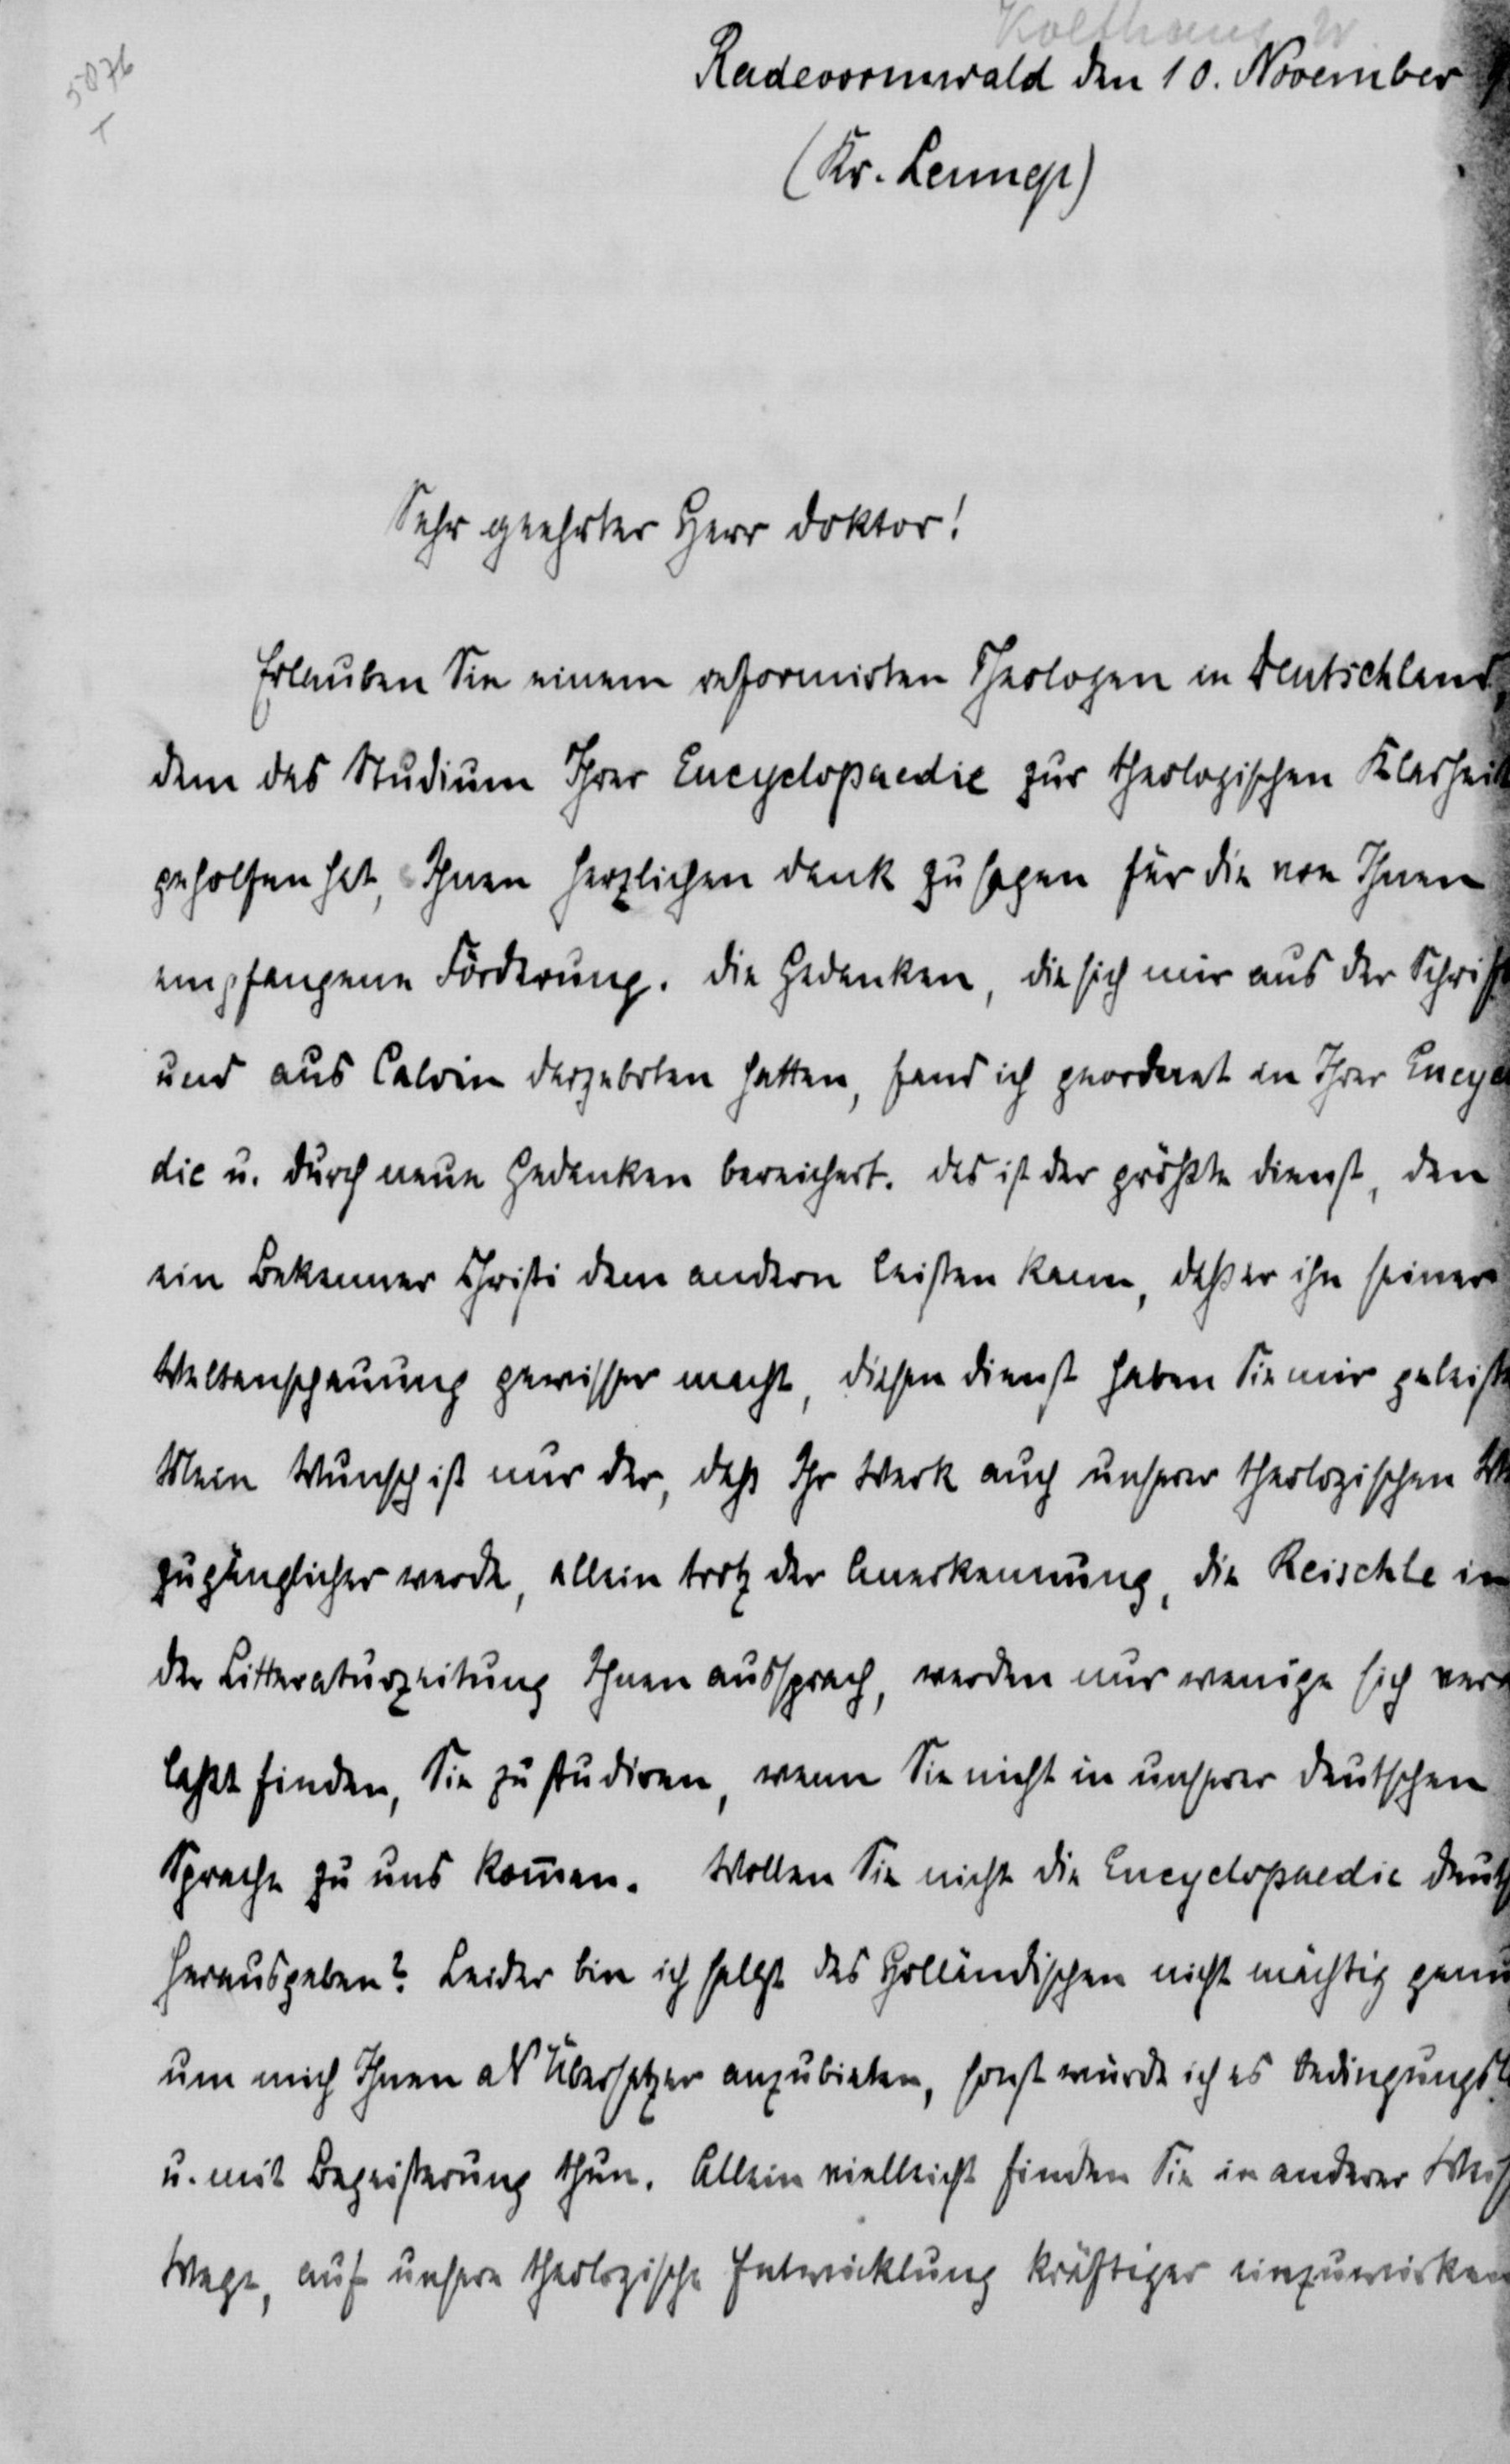 5076
T
Kolthaus W.
Radevormwald den 10. November 9
(Kr. Lennep)
Sehr geehrter Herr Doktor!
Erlauben Sie einem reformirten Theologen in Deutschland,
dem das Studium Ihrer Encyclopaedie zur theologischen Klarheit
geholfen hat, Ihnen herzlichen Dank zu sagen für die von Ihnen
empfangene Förderung. Die Gedanken, die sich mir aus der Schrift
und aus Calvin dargeboten hatten, fand ich geordnet in Ihrer Encyc
die u. durch neue Gedanken bereichert. Das ist der größte Dienst, den
ein Bekenner Christi dem andern leisten kann, daß er ihn seiner
Weltanschauung gewisser macht, diesen Dienst haben Sie mir geleiste
Mein Wunsch ist nur der, daß Ihr Werk auch unserer theologischen We
zugänglicher werde, allein trotz der Anerkennung, die Reischle in
der Litteraturzeitung Ihnen aussprach, werden nur wenige sich veran
laßt finden, Sie zu studiren, wenn Sie nicht in unserer deutschen
Sprache zu uns kom̄en. Wollen Sie nicht die Encyclopaedie deutsch
herausgeben? Leider bin ich selbst des Holländischen nicht mächtig genu
um mich Ihnen als Übersetzer anzubieten, sonst würde ich es bedingungsl
u. mit Begeisterung thun. Allein vielleicht finden Sie in anderer Weis
Wege, auf unsere theologische Entwicklung kräftiger einzuwirken